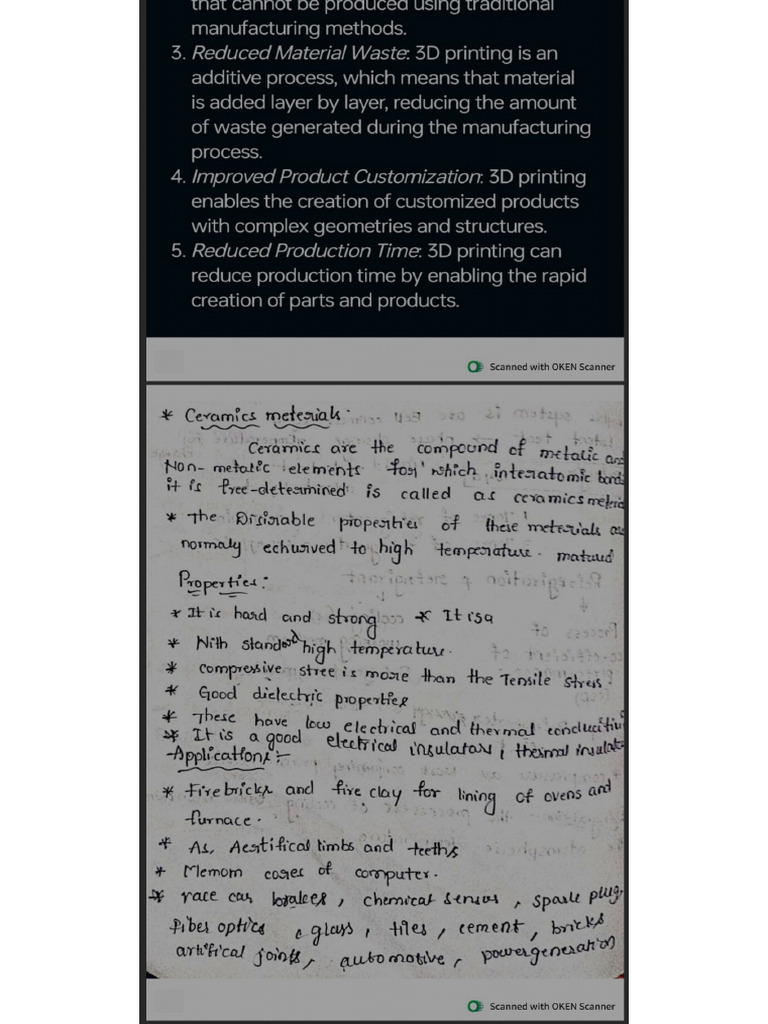 that cannot be produced using traditional
manufacturing methods.
3. Reduced Material Waste: 3D printing is an
additive process, which means that material
is added layer by layer, reducing the amount
of waste generated during the manufacturing
process.
4. Improved Product Customization: 3D printing
enables the creation of customized products
with complex geometries and structures.
5. Reduced Production Time: 3D printing can
reduce production time by enabling the rapid
creation of parts and products.
Scanned with OKEN Scanner
* Ceramics meterials.
Ceramics are the compound of metalic and
Non-metalic elements for which interatomic bonds
it is free-determined is called as ceramics
* The Disirable properties of these meterials are
normaly echurved to high temperature. matured
Properties:
* It is hard and strong * It isa
* Nith standard high temperature.
* compressive stree is more than the Tensile stress.
* Good dielectric properties
* These have low electrical and thermal
* It is a good electrical insulators, thermal
Applications:-
* Fire bricks and fire clay for lining of ovens and
furnace.
* As, Aestifical limbs and teeths
* Memom cores of computer.
* race car brakes, chemical sensors, spark plug,
fiber optics, glass, tiles, cement, bricks
artifical joints, automotive, powergeneration
Scanned with OKEN Scanner